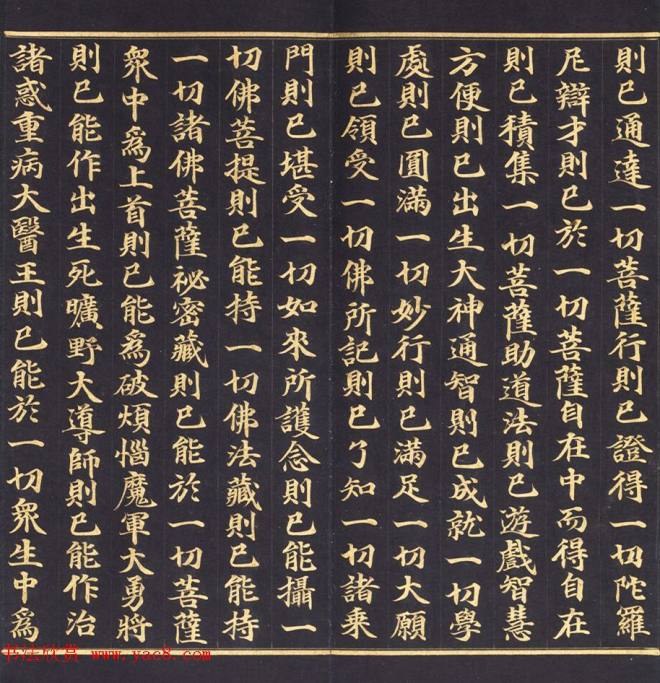 則已通達一切菩薩行則已證得一切陀羅
尼辯才則已於一切菩薩自在中而得自在
則已積集一切菩薩助道法則已遊戲智慧
方便則已出生大神通智則已成就一切學
處則已圓滿一切妙行則已滿足一切大願
則已領受一切佛所記則已了知一切諸乘
門則已堪受一切如來所護念則已能攝一
切佛菩提則已能持一切佛法藏則已能持
一切諸佛菩薩祕密藏則已能於一切菩薩
衆中爲上首則已能爲破煩惱魔軍大勇將
則已能作出生死曠野大導師則已能作治
諸惑重病大醫王則已能於一切衆生中爲
书法欣赏 www.yac8.com